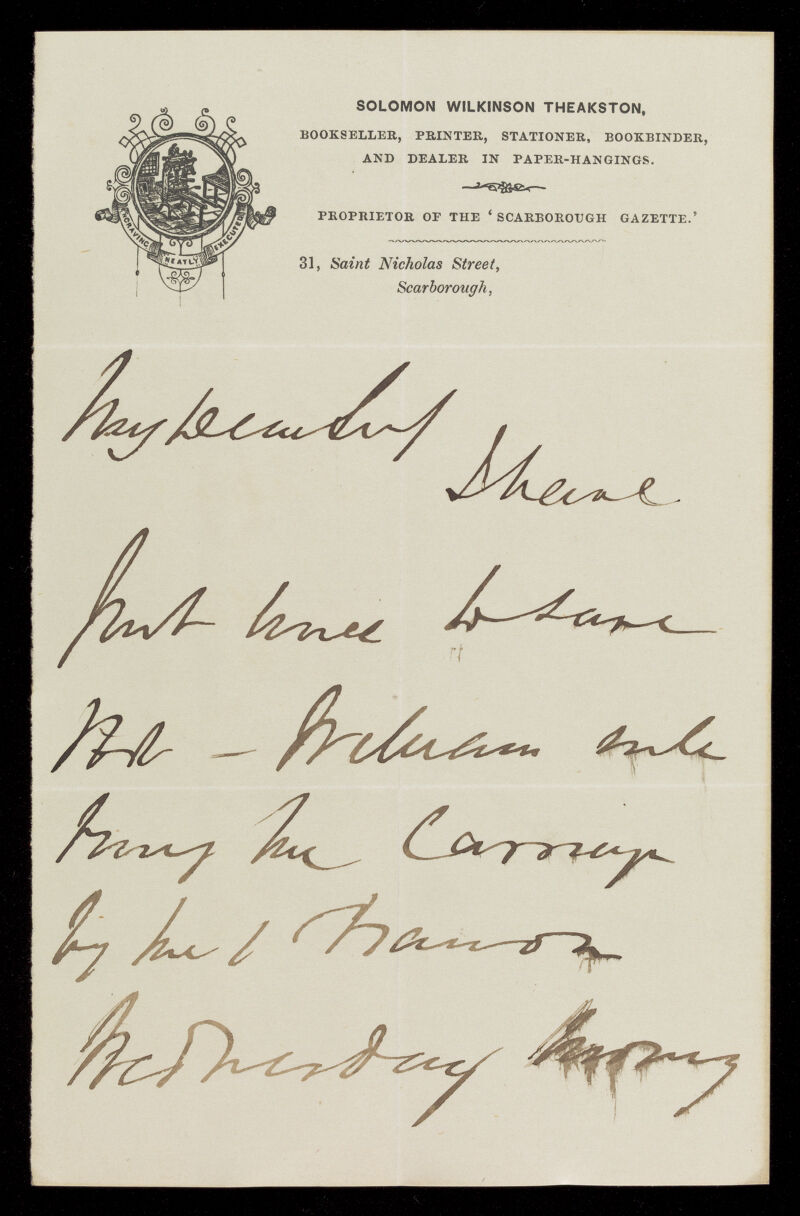 SOLOMON WILKINSON THEAKSTON,
BOOKSELLER, PRINTER, STATIONER, BOOKBINDER,
AND DEALER IN PAPER-HANGINGS.
PROPRIETOR OF THE 'SCARBOROUGH GAZETTE.'
31, Saint Nicholas Street,
Scarborough,
ENGRAVING NEATLY EXECUTED
My Dear Sir
I have
Just time to save
Post – William will
bring the Carriage
by the 1 Train on
Wednesday morning